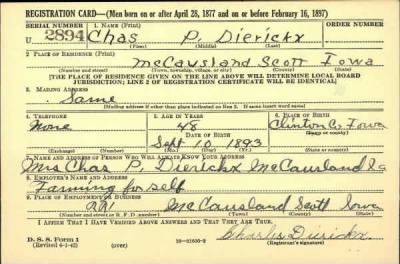 REGISTRATION CARD—(Men born on or after April 28, 1877 and on or before February 16, 1897)
SERIAL NUMBER 1. NAME (Print)
U 2894 Chas P. Dierickx
(First) (Middle) (Last)
2. PLACE OF RESIDENCE (Print)
McCausland Scott Iowa
(Number and street) (Town, township, village, or city) (County) (State)
[THE PLACE OF RESIDENCE GIVEN ON THE LINE ABOVE WILL DETERMINE LOCAL BOARD
JURISDICTION; LINE 2 OF REGISTRATION CERTIFICATE WILL BE IDENTICAL]
3. MAILING ADDRESS
Same
[Mailing address if other than place indicated on line 2. If same insert word same]
4. TELEPHONE 5. AGE IN YEARS 6. PLACE OF BIRTH
None 48 Clinton Co.
DATE OF BIRTH (Town or county)
Sept 10 1893 Iowa
(Exchange) (Number) (Mo.) (Day) (Yr.) (State or country)
7. NAME AND ADDRESS OF PERSON WHO WILL ALWAYS KNOW YOUR ADDRESS
Mrs Chas P. Dierickx McCausland Ia
8. EMPLOYER'S NAME AND ADDRESS
Farming for self
9. PLACE OF EMPLOYMENT OR BUSINESS
RR1 McCausland Scott Iowa
(Number and street or R. F. D. number) (Town) (County) (State)
I AFFIRM THAT I HAVE VERIFIED ABOVE ANSWERS AND THAT THEY ARE TRUE.
D. S. S. Form 1
(Revised 4-1-42) (over) 16—21630-2 Charles Dierickx
(Registrant's signature)